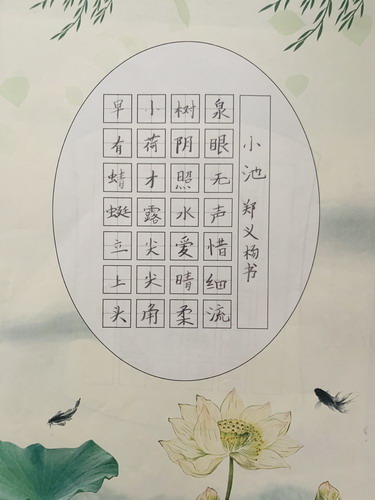 小池 郑义杨书
泉眼无声惜细流
树阴照水爱晴柔
小荷才露尖尖角
早有蜻蜓立上头